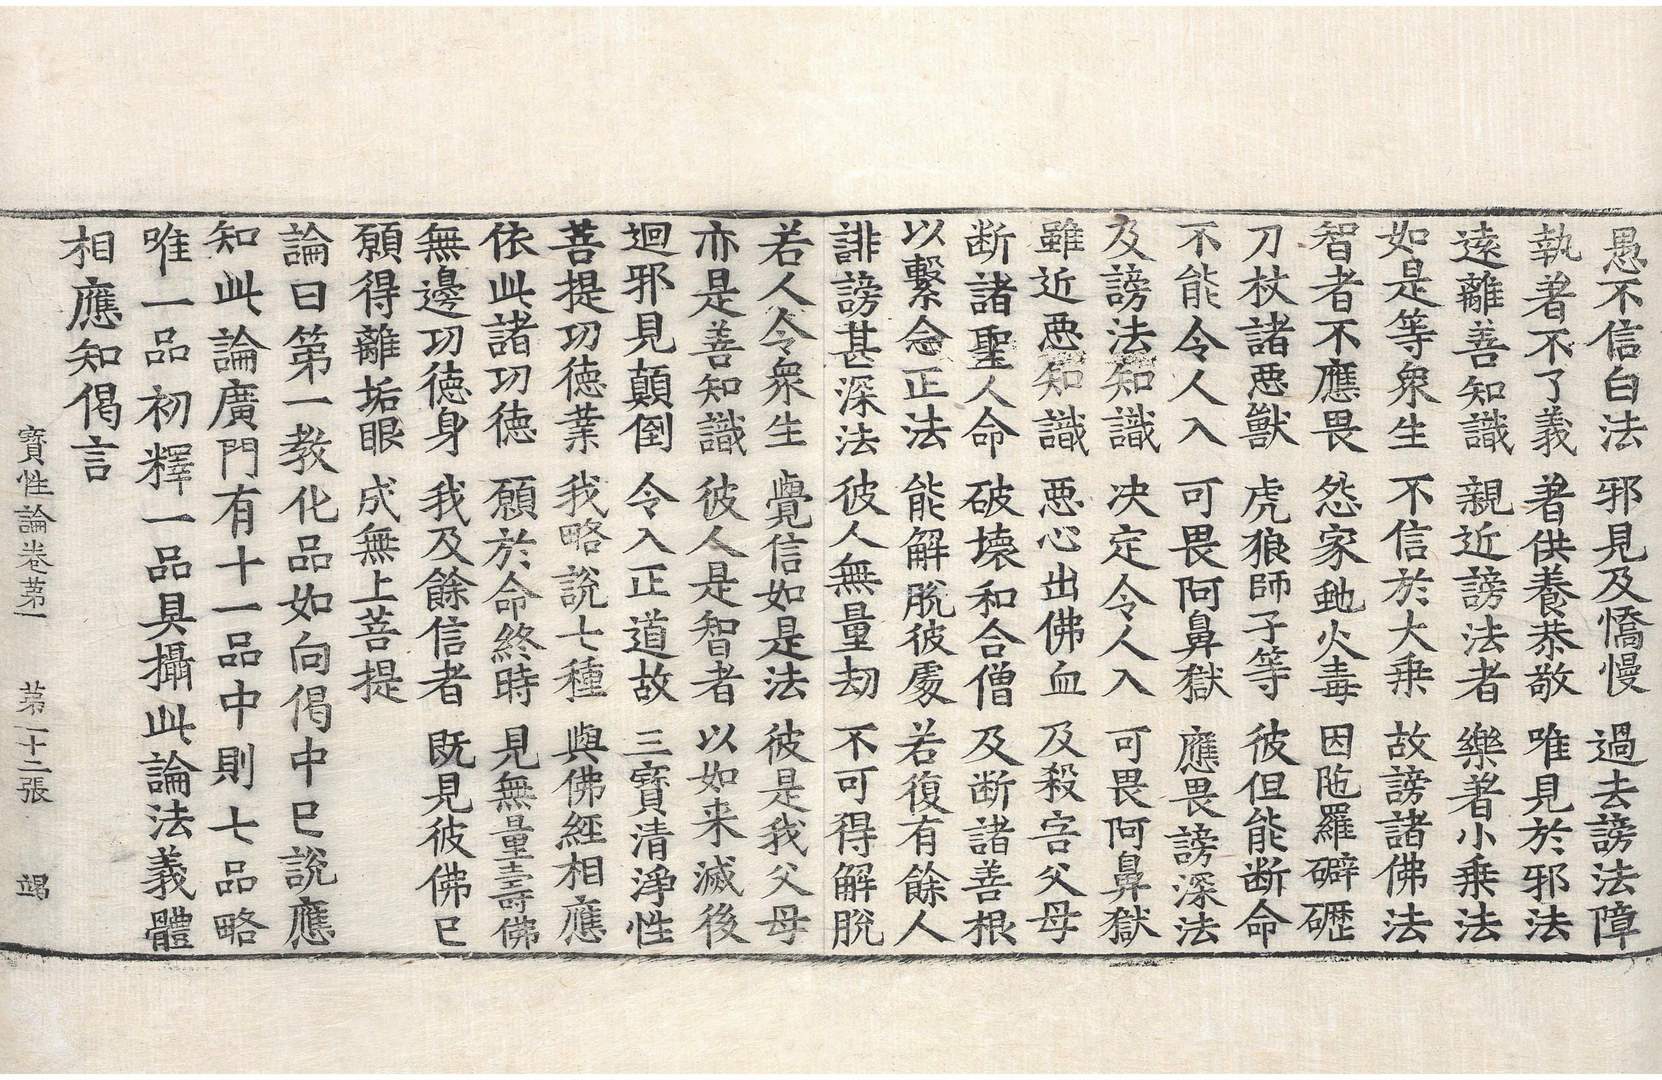 愚不信白法　邪見及憍慢　過去謗法障
執著不了義　著供養恭敬　唯見於邪法
遠離善知識　親近謗法者　樂著小乘法
如是等衆生　不信於大乘　故謗諸佛法
智者不應畏　怨家虵火毒　因陁羅礔礰
刀杖諸惡獸　虎狼師子等　彼但能断命
不能令人入　可畏阿鼻獄　應畏謗深法
及謗法知識　决定令人入　可畏阿鼻獄
雖近惡知識　惡心出佛血　及殺害父母
断諸聖人命　破壞和合僧　及断諸善根
以繫念正法　能解脫彼處　若復有餘人
誹謗甚深法　彼人無量劫　不可得解脫
若人令衆生　覺信如是法　彼是我父母
亦是善知識　彼人是智者　以如来滅後
迴邪見顛倒　令入正道故　三寶清淨性
菩提功德業　我略說七種　與佛經相應
依此諸功德　願於命終時　見無量壽佛
無邊功德身　我及餘信者　既見彼佛已
願得離垢眼　成無上菩提
論曰第一教化品如向偈中已說應
知此論廣門有十一品中則七品略
唯一品初釋一品具攝此論法義體
相應知偈言
寶性論卷苐一　苐二十二張　竭